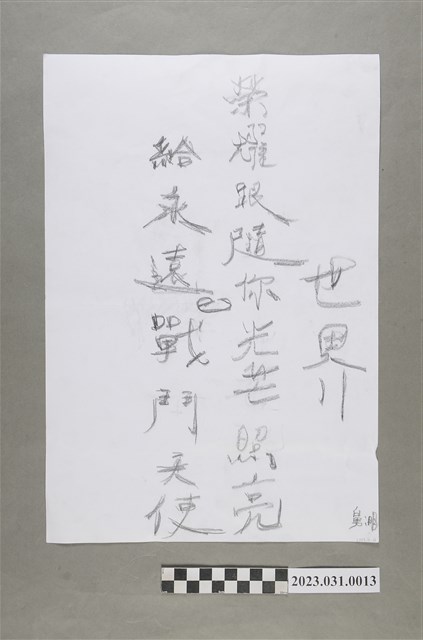 給永遠戰鬥天使
榮耀跟隨你光芒照亮
世界
2023.031.0013